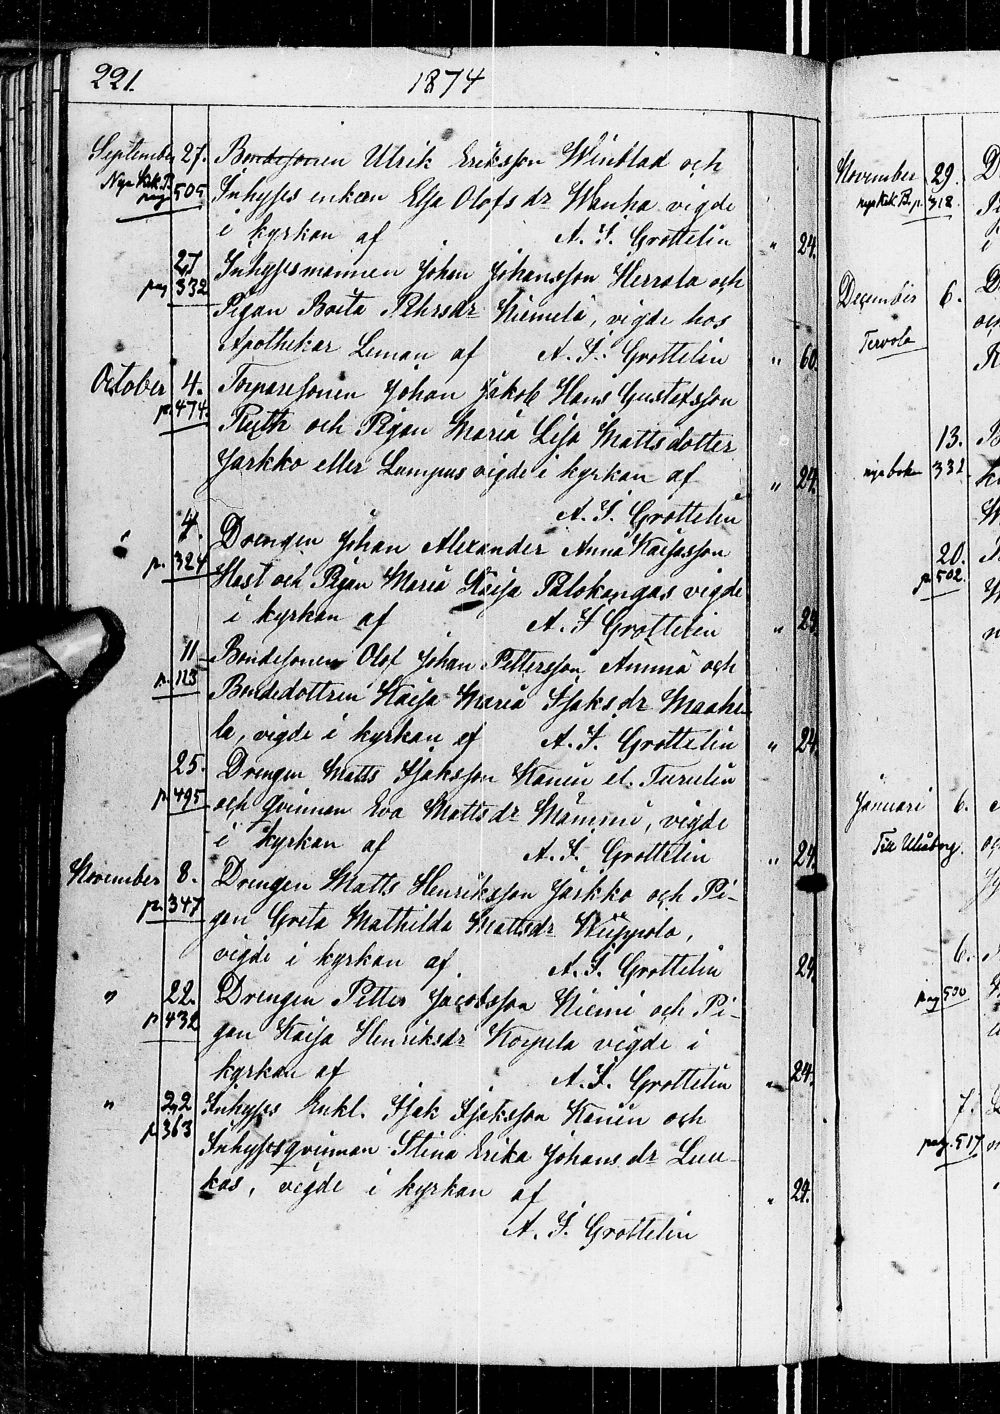 221. 1874
September 27. Bondesonen Ulrik Eriksson Winblad och
Nya Kik. B. pag 505 Inhyses enkan Elsa Olofsdr Wanha vigde
i kyrkan af A. I. Grottelin " 24.
27 Inhysesmannen Johan Johansson Herrala och
pag 332 Pigan Brita Pehrsdr Niemelä, vigde hos
Apothekar Leman af A. I. Grottelin " 60.
October 4. Torparesonen Johan Jakob Hans Gustafsson
p. 474. Ruth och Pigan Maria Lisa Mattsdotter
Jarkko eller Lumpus vigde i kyrkan af " 24.
A. I. Grottelin
" 4. Drengen Johan Alexander Anna Kaisasson
p. 324 Hast och Pigan Maria Kaisa Palokangas vigde
i kyrkan af A. I Grottelin " 24.
11 Bondesonen Olof Johan Pettersson Ämmä och
p. 113 Bondedottren Kaisa Maria Isaksdr Maahe-
la, vigde i kyrkan af A. I. Grottelin " 24.
25. Drengen Matts Isaksson Kanin el. Turulin
p. 495 och qvinnan Eva Mattsdr Mämmi, vigde
i kyrkan af A. I. Grottelin " 24.
November 8. Drengen Matts Henriksson Jarkko och Pi-
p. 347 gan Greta Mathilda Mattsdr Kuppola,
vigde i kyrkan af A. I. Grottelin 24.
" 22. Drengen Petter Jacobsson Niemi och Pi-
p 432 gan Kaisa Henriksdr Korpela vigde i
kyrkan af A. I. Grottelin " 24.
" 22 Inhyses Enkl. Isak Isaksson Kanin och
p 363 Inhysesqvinnan Stina Erika Johansdr Luu-
kas, vigde i kyrkan af " 24.
A. I. Grottelin
November 29.
nya Kik B. p. 318.
December 6.
Tervola
13.
nya boken 332
20.
p 502.
Januari 6.
Till Uleåborg.
6.
pag 500
7.
pag. 517